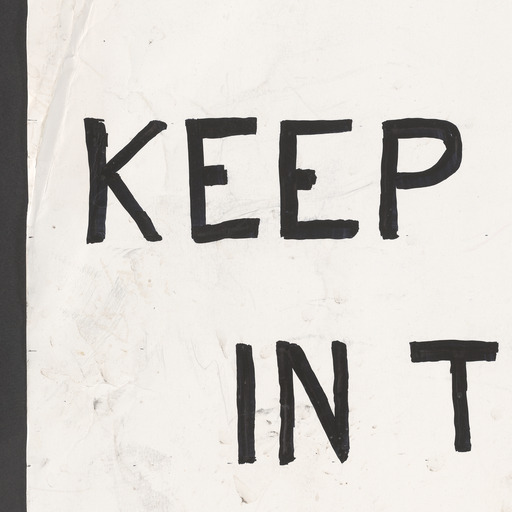 KEEP
IN T